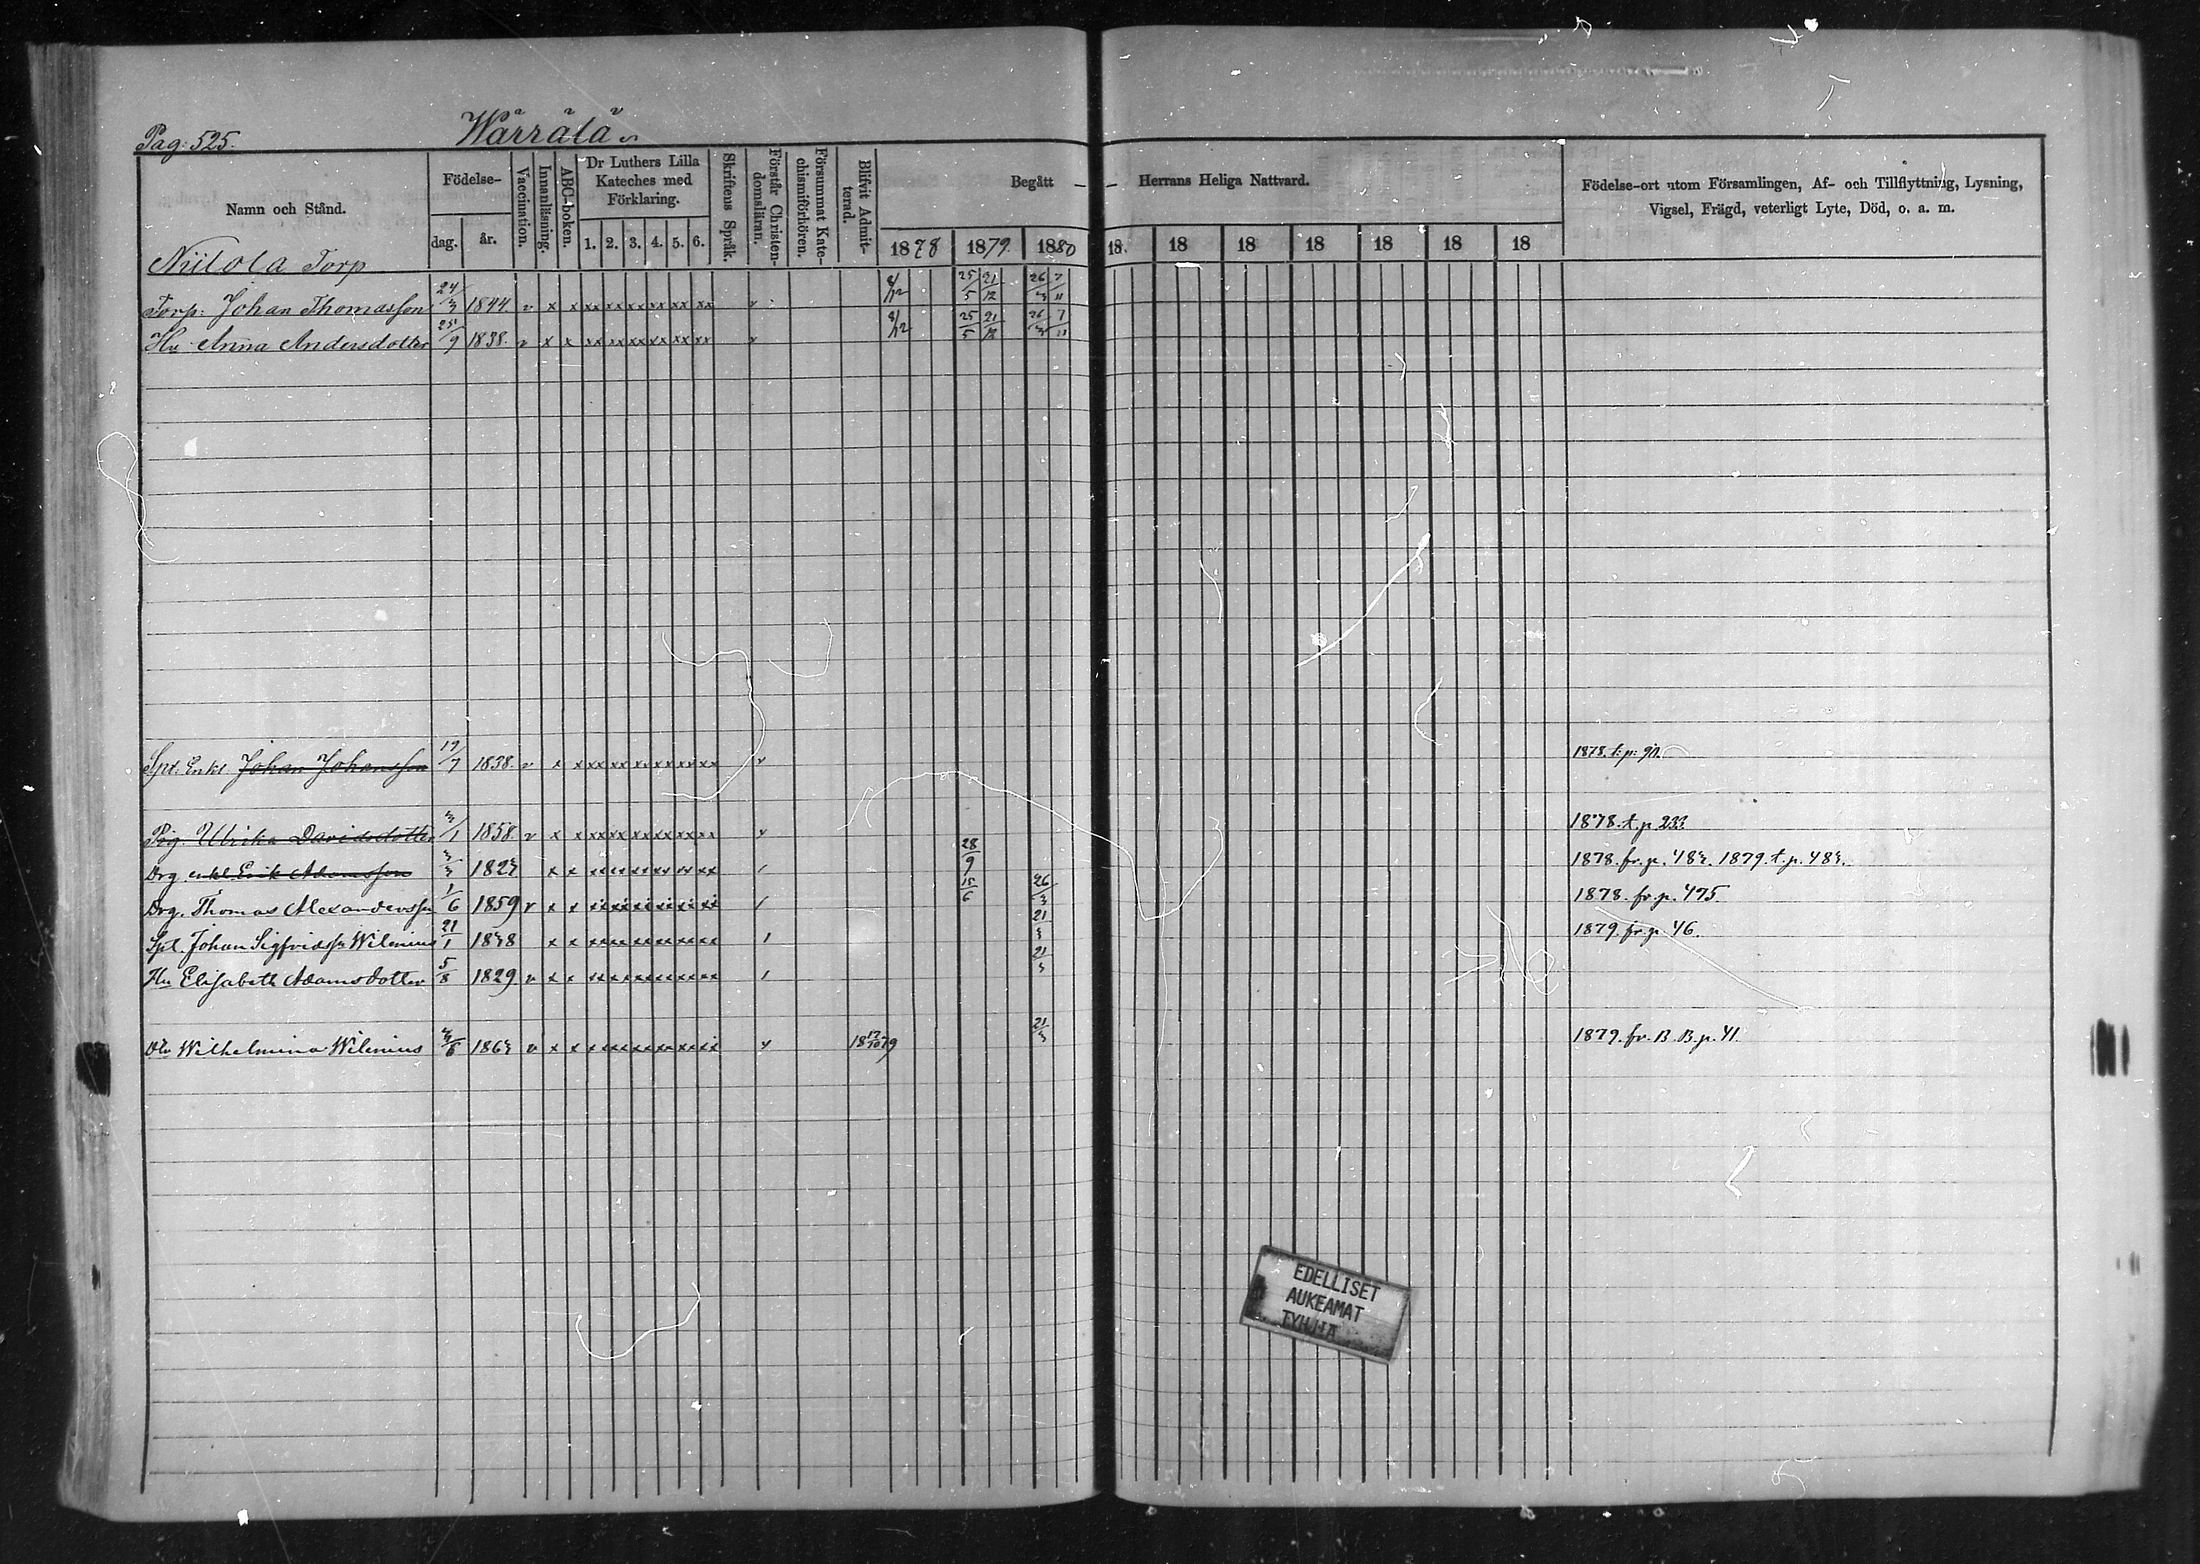 Pag: 525.
Wärrälä
Namn och Stånd.
Födelse-
dag. år.
Vaccination.
Innanläsning.
ABC-boken.
Dr Luthers Lilla
Kateches med
Förklaring.
1. 2. 3. 4. 5. 6.
Skriftens Språk.
Förstår Christen-
domsläran.
Försummat Kate-
chismiförhören.
Blifvit Admit-
terad.
Begått Herrans Heliga Nattvard.
1878 1879. 1880 18 18 18 18 18 18 18
Födelse-ort utom Församlingen, Af- och Tillflyttning, Lysning,
Vigsel, Frägd, veterligt Lyte, Död, o. a. m.
Niilola Torp
Torp: Johan Thomasson 24/3 1844. v x x xx xx xx xx xx xx v 8/12 25/5 21/12 26/3 7/11
Hu Anna Andersdotter 25/9 1838. v x x xx xx xx xx xx xx v 8/12 25/5 21/12 26/3 7/11
Spt. Enkl. Johan Johansson 19/7 1838. v x x xx xx xx xx xx xx v 1878. t. p.
Pig. Ulrika Davidsdotter 3/1 1858. v x x xx xx xx xx xx xx v 1878. t. p. 233
Drg. enkl Erik Adamsson 3/3 1823 x x xx xx xx xx xx xx / 28/9 1878. fr. p. 483. 1879. t. p. 483.
Drg. Thomas Alexandersson 1/6 1859 v x x / 15/6 26/3 1878. fr. p. 475.
Spt. Johan Sigfridss: Wilenius 21/1 1838 x x xx xx xx xx xx xx / 21/3 1879. fr. p. 46.
Hu Elisabeth Adamsdotter 5/8 1829 v x x xx xx xx xx xx xx / 21/3
Dtr Wilhelmina Wilenius 3/6 1863 v x x v 18 12/10 79 21/3 1879. fr. B. B. p. 41.
EDELLISET
AUKEAMAT
TYHJIÄ